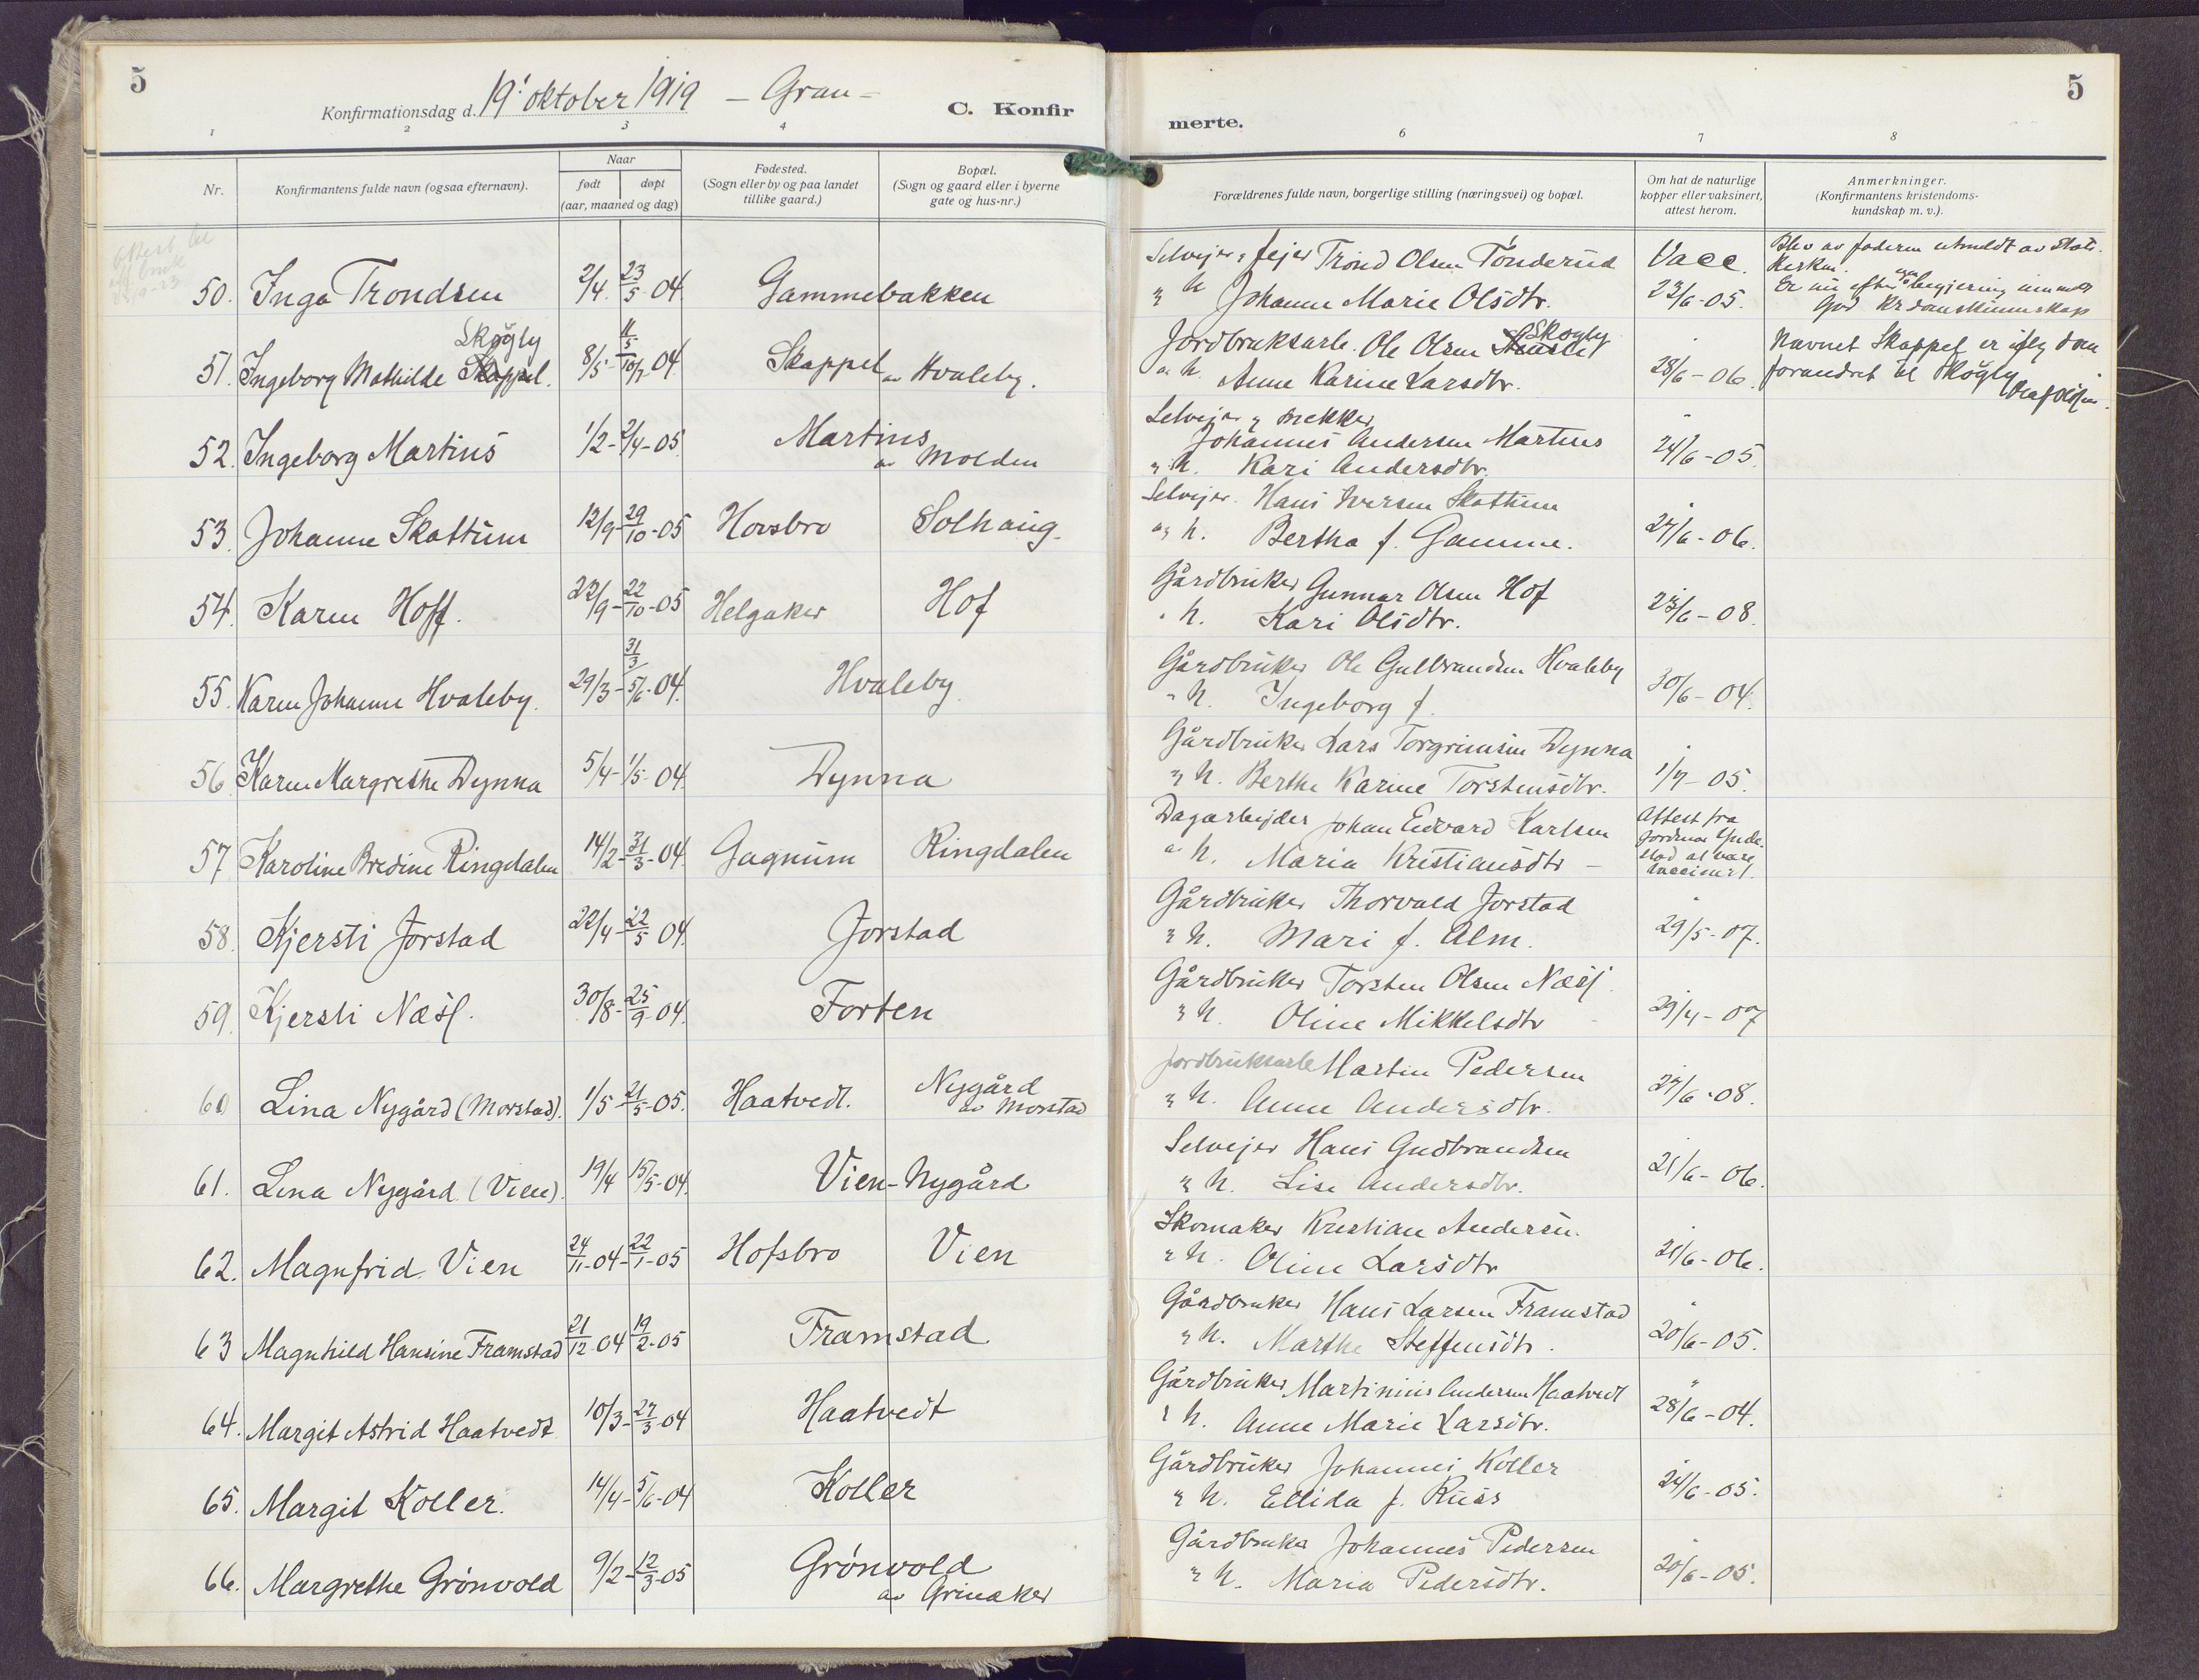 5
Konfirmationsdag d. 19' oktober 1919 – Gran –
C. Konfir
merte.
5
1 2 3 4 6 7 8
Nr.
Konfirmantens fulde navn (ogsaa efternavn).
Naar
født døpt
(aar, maaned og dag)
Fødested.
(Sogn eller by og paa landet
tillike gaard.)
Bopæl.
(Sogn og gaard eller i byerne
gate og hus-nr.)
Forældrenes fulde navn, borgerlige stilling (næringsvei) og bopæl.
Om hat de naturlige
kopper eller vaksinert,
attest herom.
Anmerkninger.
(Konfirmantens kristendoms-
kundskap m. v.).
Attest
50. Inga Trondsen 2/4. 23/5-04 Gammebakken
Selveier, fejer Trond Olsen Tönderud Vacc.
h Johanne Marie Olsdtr. 23/6-05.
Blev av faderen utmeldt av Stats
kirken.
Er nu efter egen begjering
God krdomskunnskap
51. Ingeborg Mathilde Skappel. Skogly 8/5- 11/5 10/7 04. Skappel av Hvaleby.
Jordbruksarb. Ole Olsen Skogly
h. Anne Karine Larsdtr. 28/6-06.
Navnet Skappel er
forandret til Skogly
52. Ingeborg Martins 1/2-2/4-05. Martins av Molden
Selvejer, snekker
Johannes Andersen Martins
h. Kari Andersdtr. 24/6-05.
53. Johanne Skattum 12/9-29/10-05 Hovsbro Solhaug.
Selvejer. Hans Iversen Skattum
h. Bertha f. Gamme. 27/6-06.
54. Karen Hoff. 22/9-22/10-05 Helgaker Hof
Gårdbruker Gunnar Olsen Hof
h. Kari Olsdtr. 23/6-08.
55. Karen Johanne Hvaleby. 29/3- 31/3 5/6-04. Hvaleby
Gårdbruker Ole Gulbrandsen Hvaleby
h. Ingeborg f. 30/6-04.
56. Karen Margrethe Dynna 5/4-1/5-04. Dynna
Gårdbruker Lars Torgrimsen Dynna
h. Berthe Karine Torstensdtr. 1/7-05.
57 Karoline Bredine Ringdalen 14/2-31/3-04. Gagnum Ringdalen
Dagarbejder Johan Edvard Karlsen
h. Maria Kristiansdtr –
Attest fra
Jordmor
stad at være
vaccinert.
58. Kjersti Jorstad 22/4-22/5 04. Jorstad
Gårdbruker Thorvald Jorstad
h. Mari f. Alm. 29/5-07.
59. Kjersti Næss. 30/8-25/9-04. Forten
Gårdbruker Torsten Olsen Næss
h. Oline Mikkelsdtr 29/4-07
60 Lina Nygård (Morstad). 1/5-21/5-05. Haatvedt. Nygård av Morstad
Jordbruksarb Martin Pedersen
h. Anne Andersdtr. 27/6-08.
61. Lina Nygård (Vien). 19/4 15/5-04. Vien-Nygård
Selvejer Hans Gudbrandsen
h. Lise Andersdtr. 21/6-06.
62. Magnfrid Vien 24/11-04-22/1-05 Hofsbro Vien
Skomaker Kristian Andersen.
h. Oline Larsdtr 21/6-06.
63 Magnhild Hansine Framstad 21/12-04 19/2-05 Framstad
Gårdbruker Hans Larsen Framstad
h. Marthe Steffensdtr. 20/6-05.
64. Margit Astrid Haatvedt 10/3-27/3-04 Haatvedt
Gårdbruker Martinius Andersen Haatvedt
h. Anne Marie Larsdtr. 28/6-04.
65. Margit Koller. 14/4-5/6-04 Koller
Gårdbruker Johannes Koller
h. Ellida f. Russ 24/6-05.
66. Margrethe Grönvold 9/2-12/3-05 Grönvold av Grinaker
Gårdbruker Johannes Pedersen
h. Maria Pedersdtr. 20/6-05.